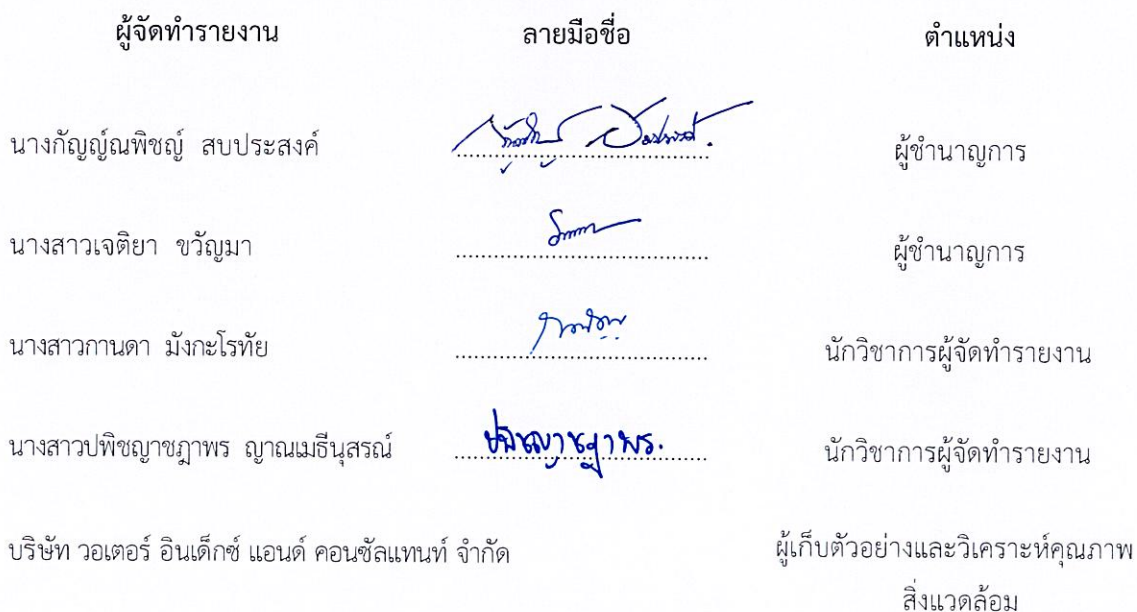 ผู้จัดทำรายงาน ลายมือชื่อ ตำแหน่ง
นางกัญญ์ณพิชญ์ สบประสงค์ ผู้ชำนาญการ
นางสาวเจติยา ขวัญมา ผู้ชำนาญการ
นางสาวกานดา มังกะโรทัย นักวิชาการผู้จัดทำรายงาน
นางสาวปพิชญาชฎาพร ญาณเมธีนุสรณ์ ปพิชญาชฎาพร. นักวิชาการผู้จัดทำรายงาน
บริษัท วอเตอร์ อินเด็กซ์ แอนด์ คอนซัลแทนท์ จำกัด ผู้เก็บตัวอย่างและวิเคราะห์คุณภาพ
สิ่งแวดล้อม